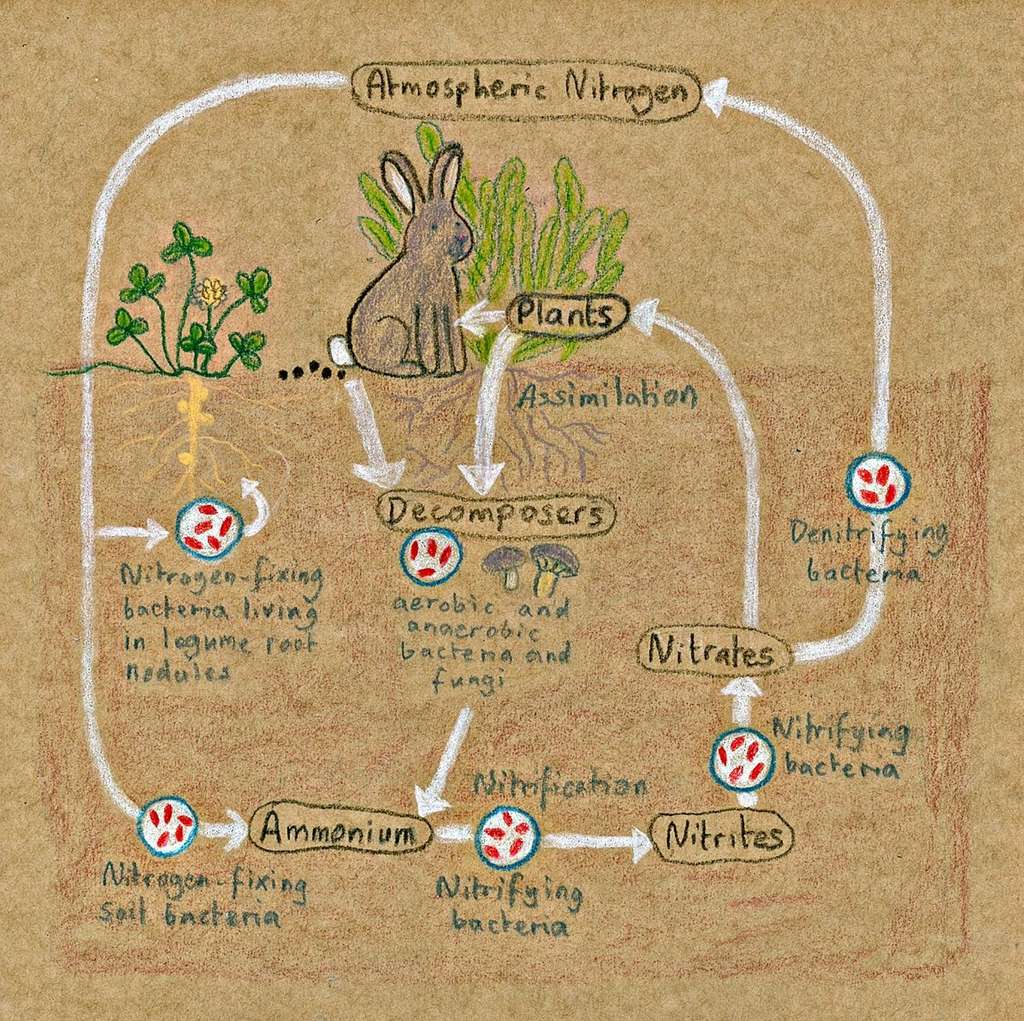 Atmospheric Nitrogen
Plants
Assimilation
Decomposers
aerobic and
anaerobic
bacteria and
fungi
Nitrogen-fixing
bacteria living
in legume root
nodules
Denitrifying
bacteria
Nitrates
Nitrifying
bacteria
Nitrification
Ammonium
Nitrites
Nitrogen-fixing
soil bacteria
Nitrifying
bacteria